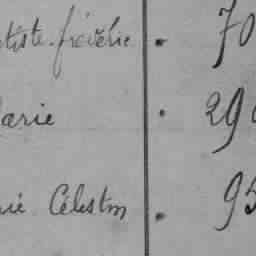 tiste frévérie . 70
Marie . 290
rie Célestin . 95